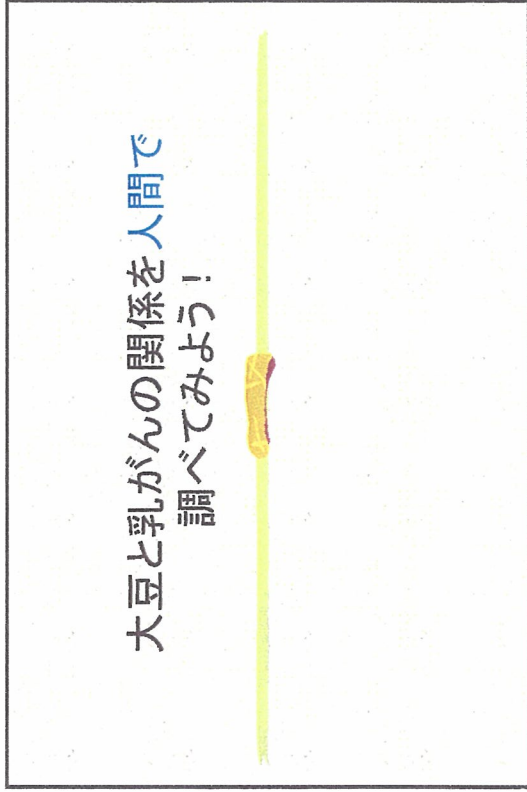 大豆と乳がんの関係を人間で
調べてみよう！